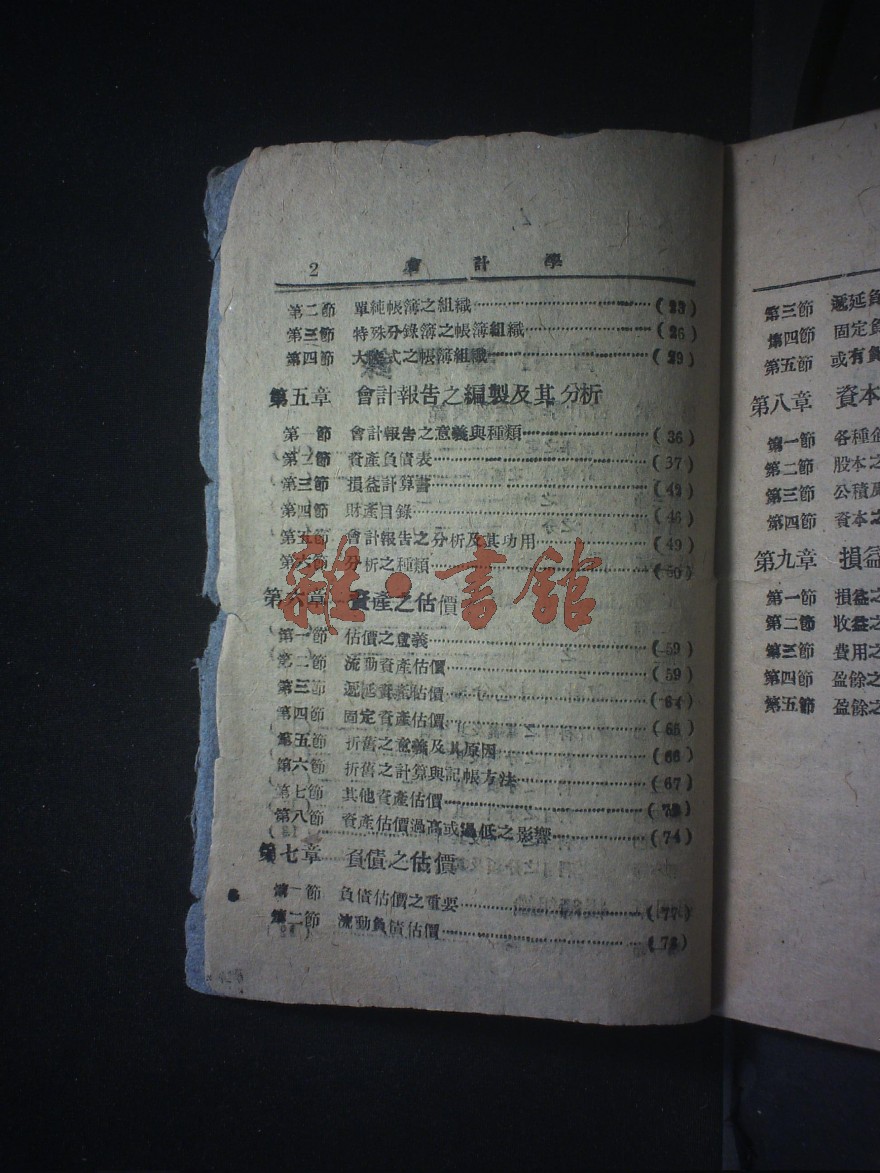 2 會計學
第二節 單純帳簿之組織 (23)
第三節 特殊分錄簿之帳簿組織 (26)
第四節 大 式之帳簿組織 (29)
第五章 會計報告之編製及其分析
第一節 會計報告之意義與種類 (36)
第二節 資產負債表 (37)
第三節 損益計算書
第四節 財產目錄 (46)
第五節 會計報告之分析及其功用 (49)
第六節 分析之種類 (50)
第六章 資產之估價
第一節 估價之意義 (59)
第二節 流動資產估價 (59)
第三節 遞延資產估價 (64)
第四節 固定資產估價 (65)
第五節 折舊之意義及其原因 (66)
第六節 折舊之計算與記帳方法 (67)
第七節 其他資產估價
第八節 資產估價過高或過低之影響 (74)
第七章 負債之估價
第一節 負債估價之重要 (77)
第二節 流動負債估價
雜·書館
第三節 遞延負
第四節 固定負
第五節 或有負
第八章 資本
第一節 各種企
第二節 股本之
第三節 公積
第四節 資本之
第九章 損益
第一節 損益之
第二節 收益之
第三節 費用之
第四節 盈餘之
第五節 盈餘之